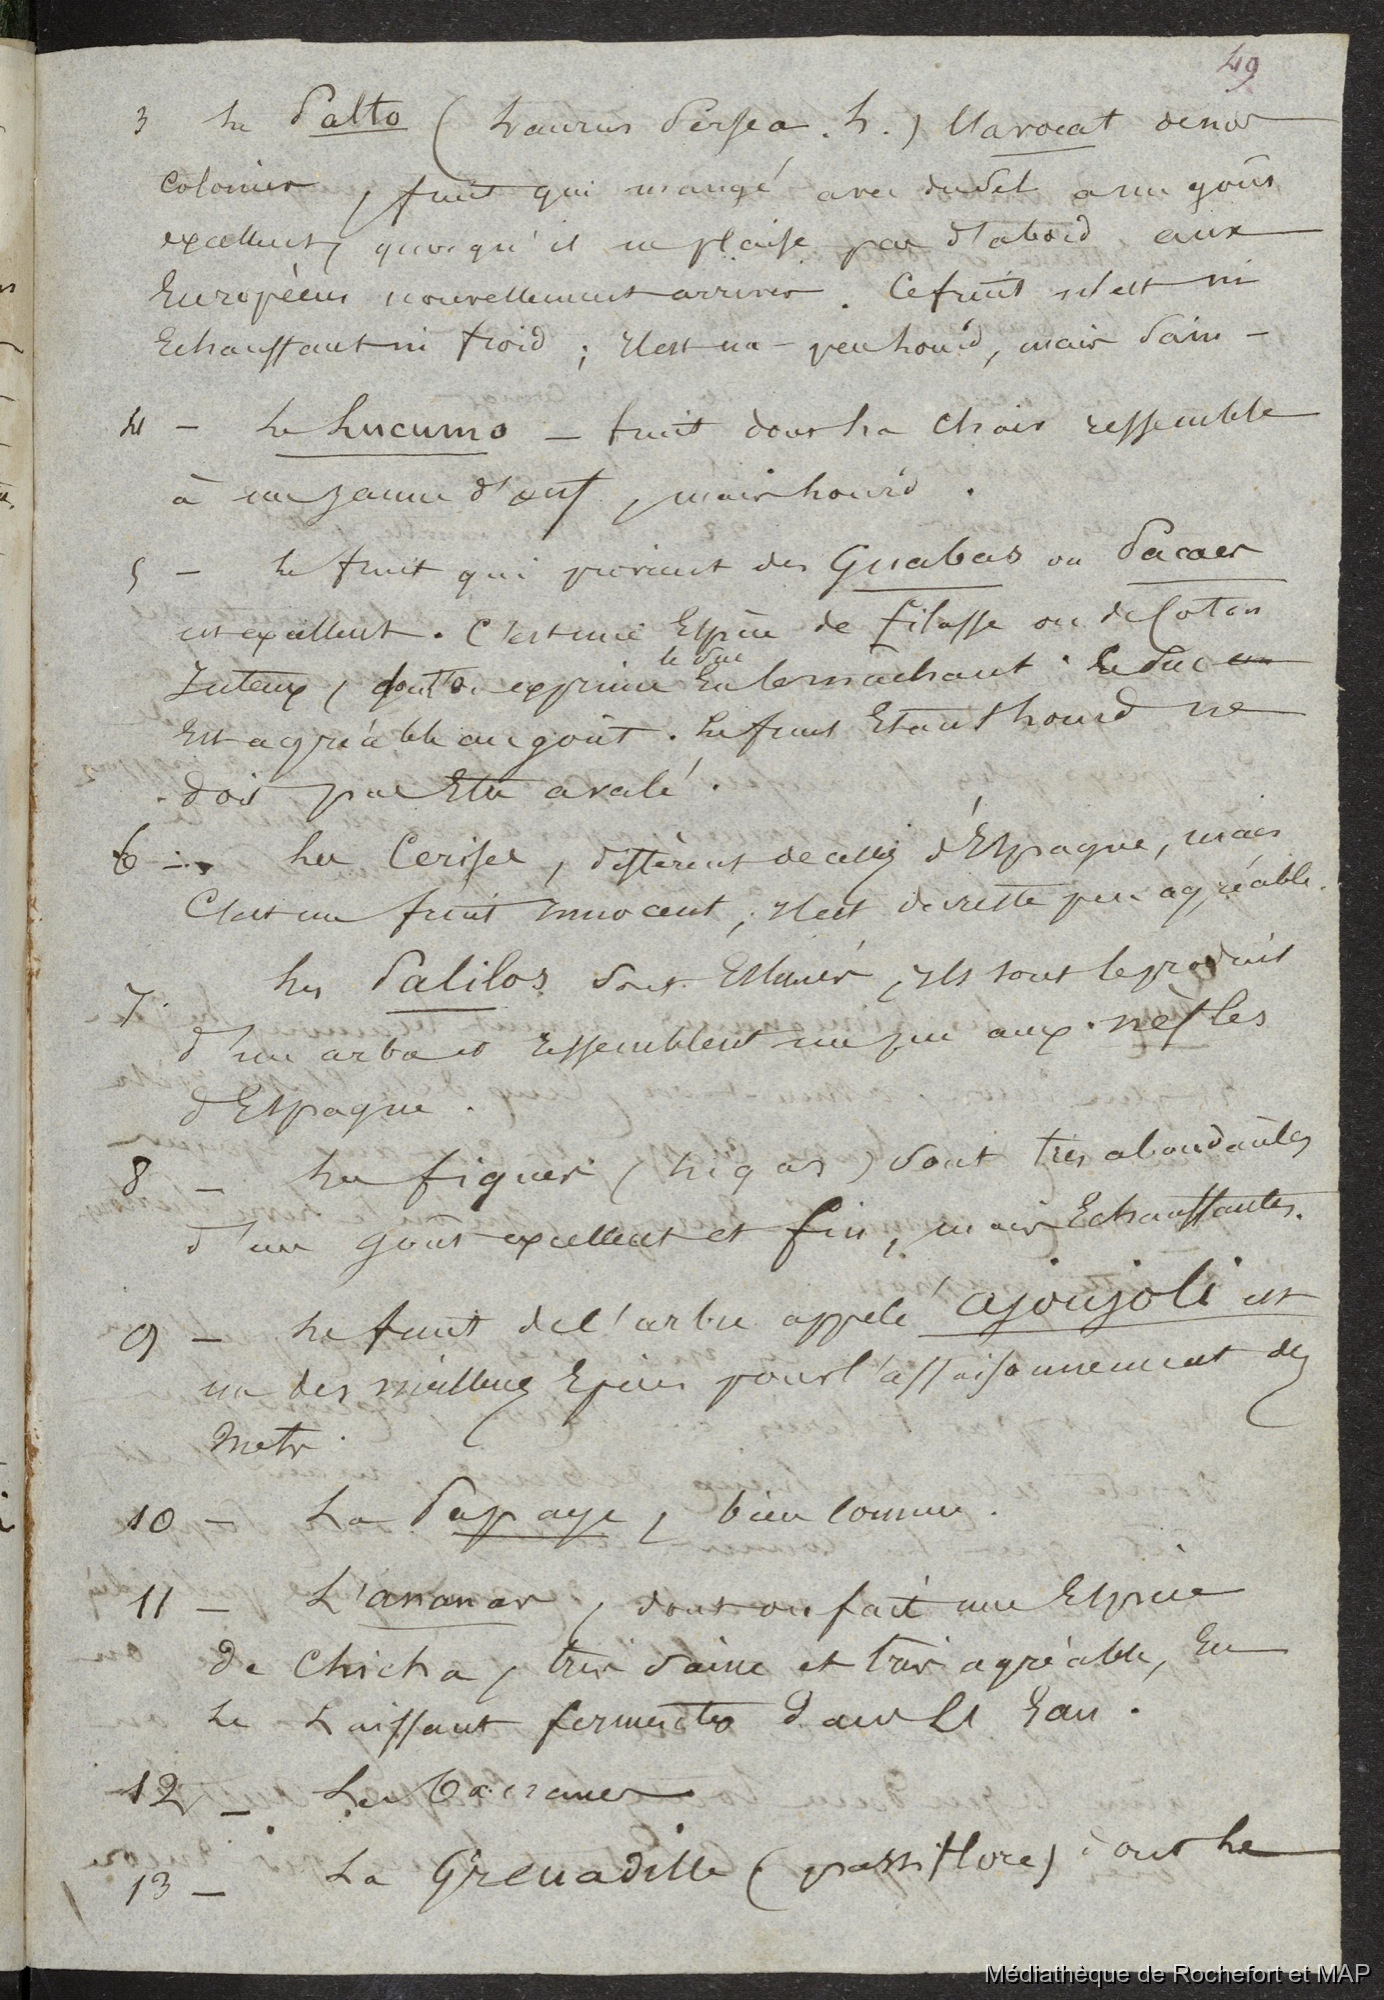 49
3 Le Palto (Laurus Persea. L.) L'avocat de nos
Colonies, fruit qui mangé avec du Sel a un goût
excellent, quoiqu'il ne plaise pas d'abord aux
Européens nouvellement arrivés. Ce fruit n'est ni
Echauffant ni froid ; Il est un peu lourd, mais Sain -
4 - Le Lucumo - fruit dont La Chair ressemble
à un jaune d'œuf, mais lourd.
5 - Le fruit qui provient des Guabas ou Pacaes
est excellent. C'est une Espèce de filasse ou de Coton
Juteux, dont on exprime le Suc En le machant. Le Suc en
Est agréable au goût. Le fruit Etant lourd ne
doit pas Etre avalé.
6 - Les Cerises, diffèrent de celles d'Espagne, mais
C'est un fruit Innocent, Il est de reste peu agréable.
7. Les Palilos Sont Estimés, Ils sont le produit
d'un arbre et ressemblent un peu aux nèfles
d'Espagne.
8 - Les figues (higas) Sont très abondantes
d'un goût excellent et fin, mais Echauffantes.
9 - Le fruit de l'arbre appelé ajoujoli est
un des meilleurs Epices pour l'assaisonnement des
Mets.
10 - La Papaye, bien Connue.
11 - L'ananas, dont on fait une Espèce
de Chicha, très Saine et très agréable, En
Le Laissant fermenter dans L'Eau.
12 - Les bananes
13 - La Grenadille (passiflore) dont Le
Médiathèque de Rochefort et MAP